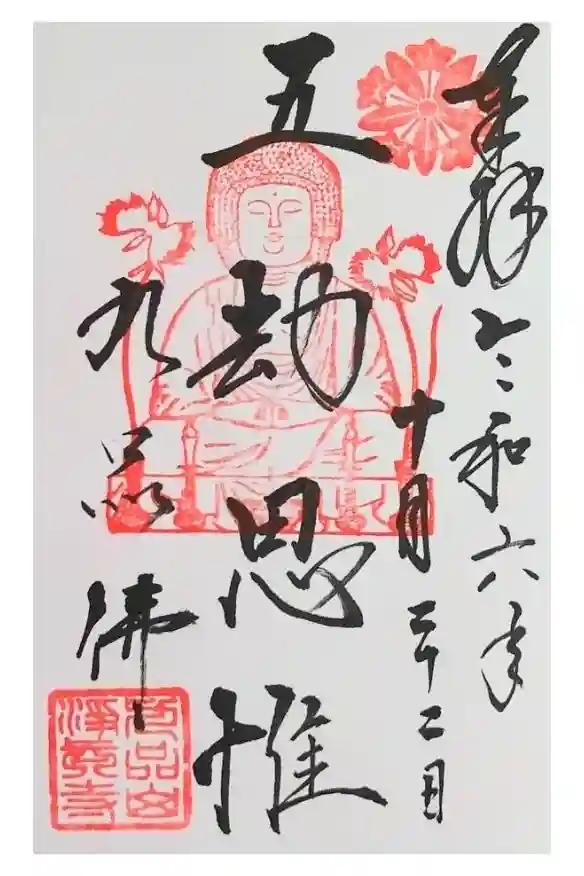 奉拝 令和六年
十月二十二日
五劫思惟
九品佛
九品山
淨眞寺